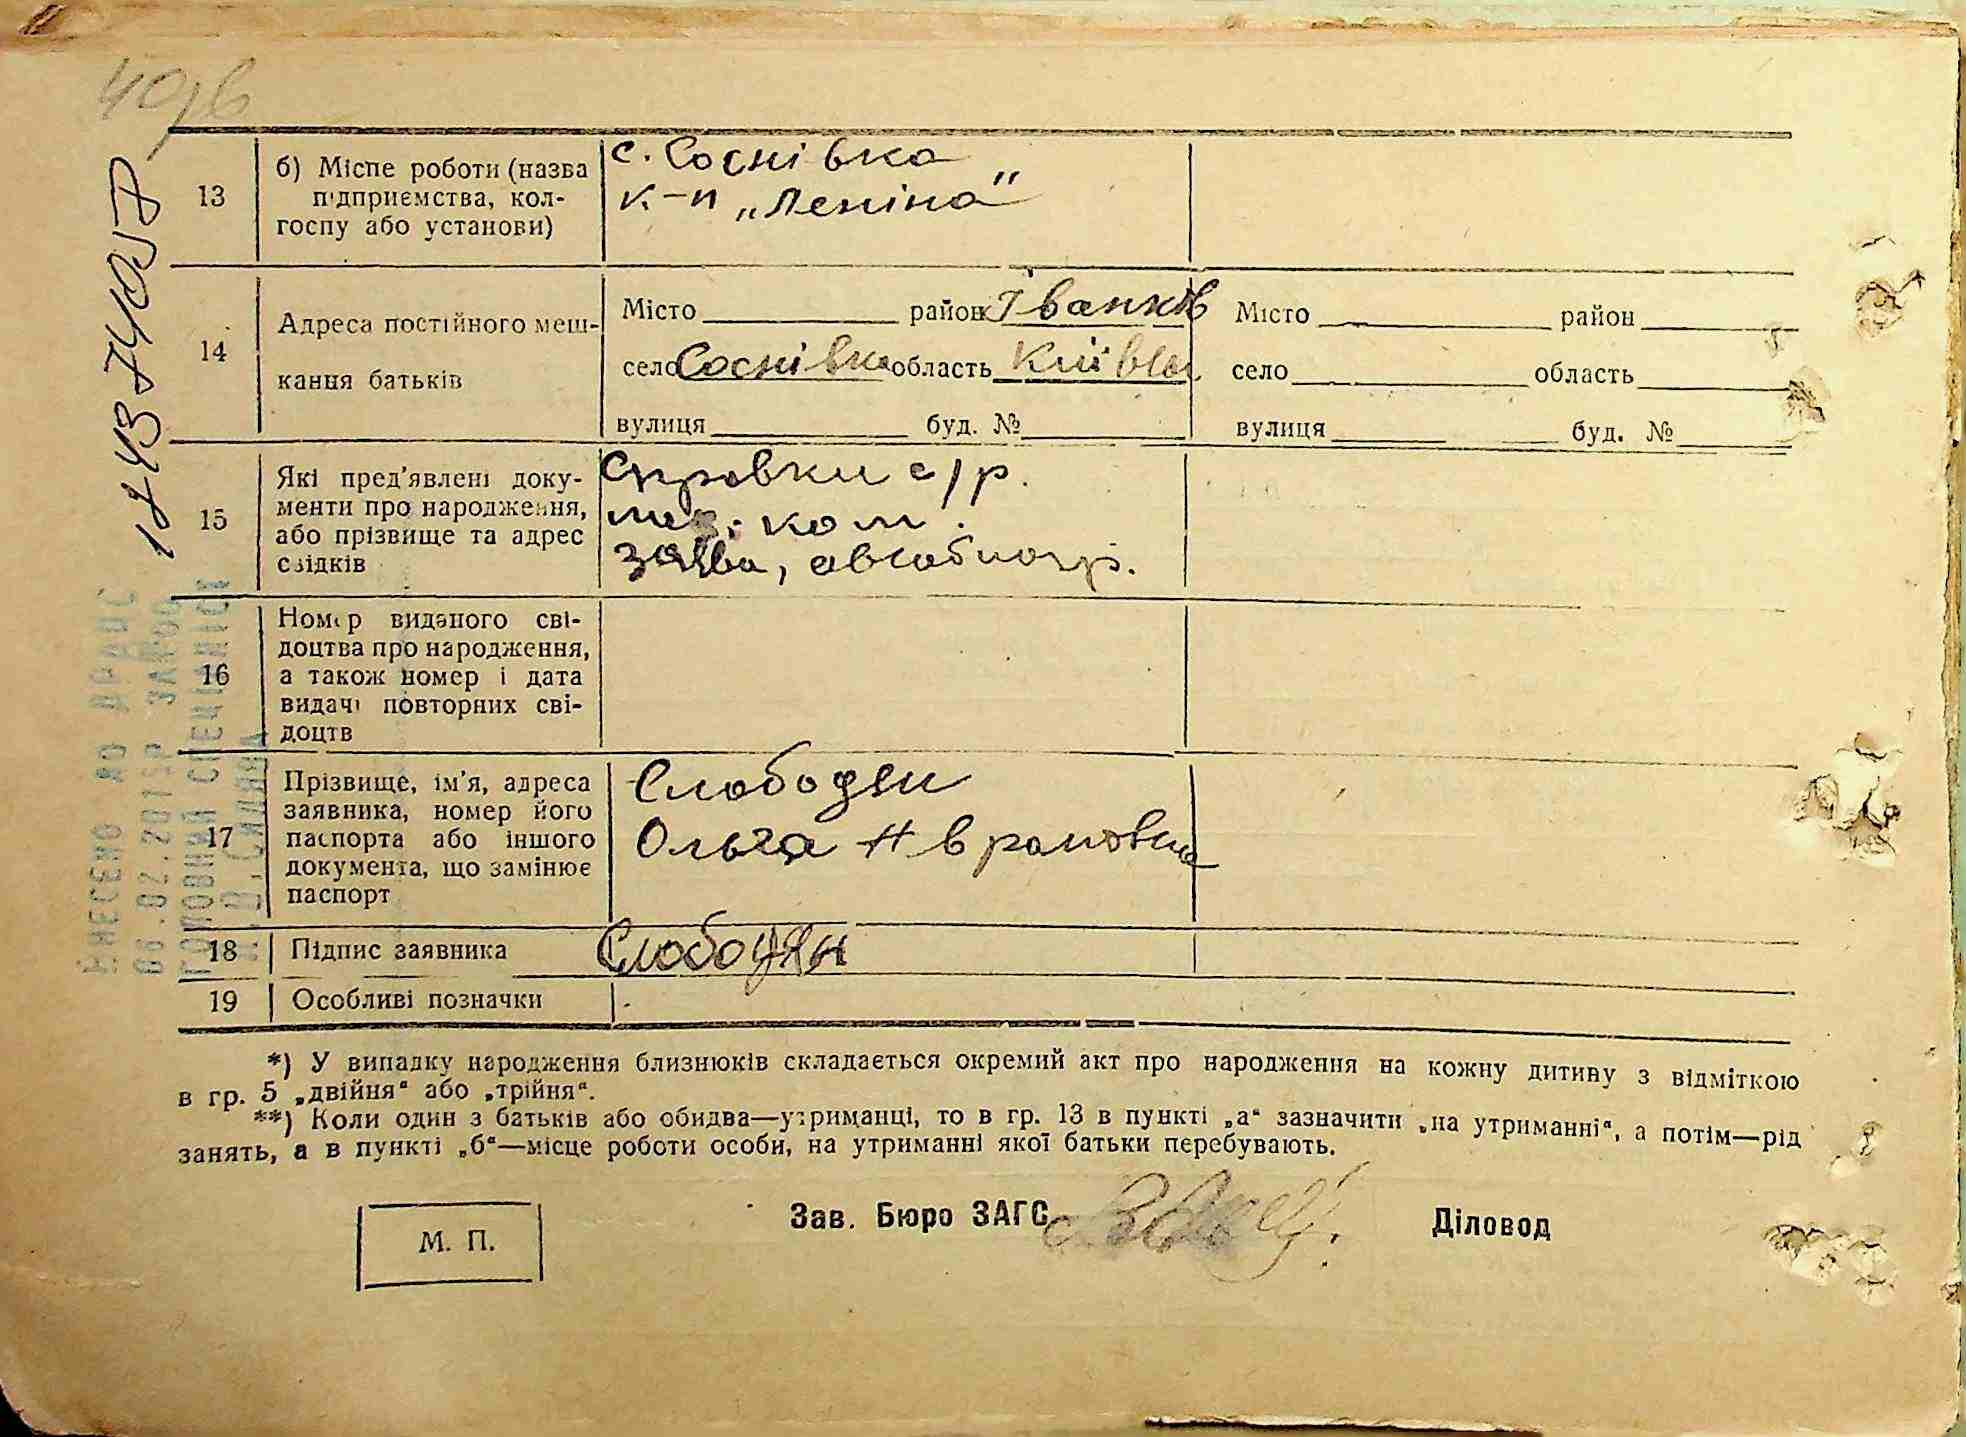 40 зв
13
б) Місце роботи (назва
підприємства, кол-
госпу або установи)
с. Соснівка
к-п „Леніна"
14
Адреса постійного меш-
кання батьків
Місто район Іванків
село Соснівка область Київськ.
вулиця буд. №
Місто район
село область
вулиця буд. №
15
Які пред'явлені доку-
менти про народження,
або прізвище та адрес
свідків
Справки с/р.
мед. ком.
заява, автобіогр.
16
Номер виданого сві-
доцтва про народження,
а також номер і дата
видачі повторних сві-
доцтв
17
Прізвище, ім'я, адреса
заявника, номер його
паспорта або іншого
документа, що замінює
паспорт
Слободян
Ольга Аврамовна
18
Підпис заявника
Слободян
19
Особливі позначки
*) У випадку народження близнюків складається окремий акт про народження на кожну дитину з відміткою
в гр. 5 „двійня" або „трійня".
**) Коли один з батьків або обидва—утриманці, то в гр. 13 в пункті „а" зазначити „на утриманні", а потім—рід
занять, а в пункті „б"—місце роботи особи, на утриманні якої батьки перебувають.
М. П.
Зав. Бюро ЗАГС
Діловод
ВНЕСЕНО ДО ДРАЦС
ГОЛОВНИЙ СПЕЦІАЛІСТ